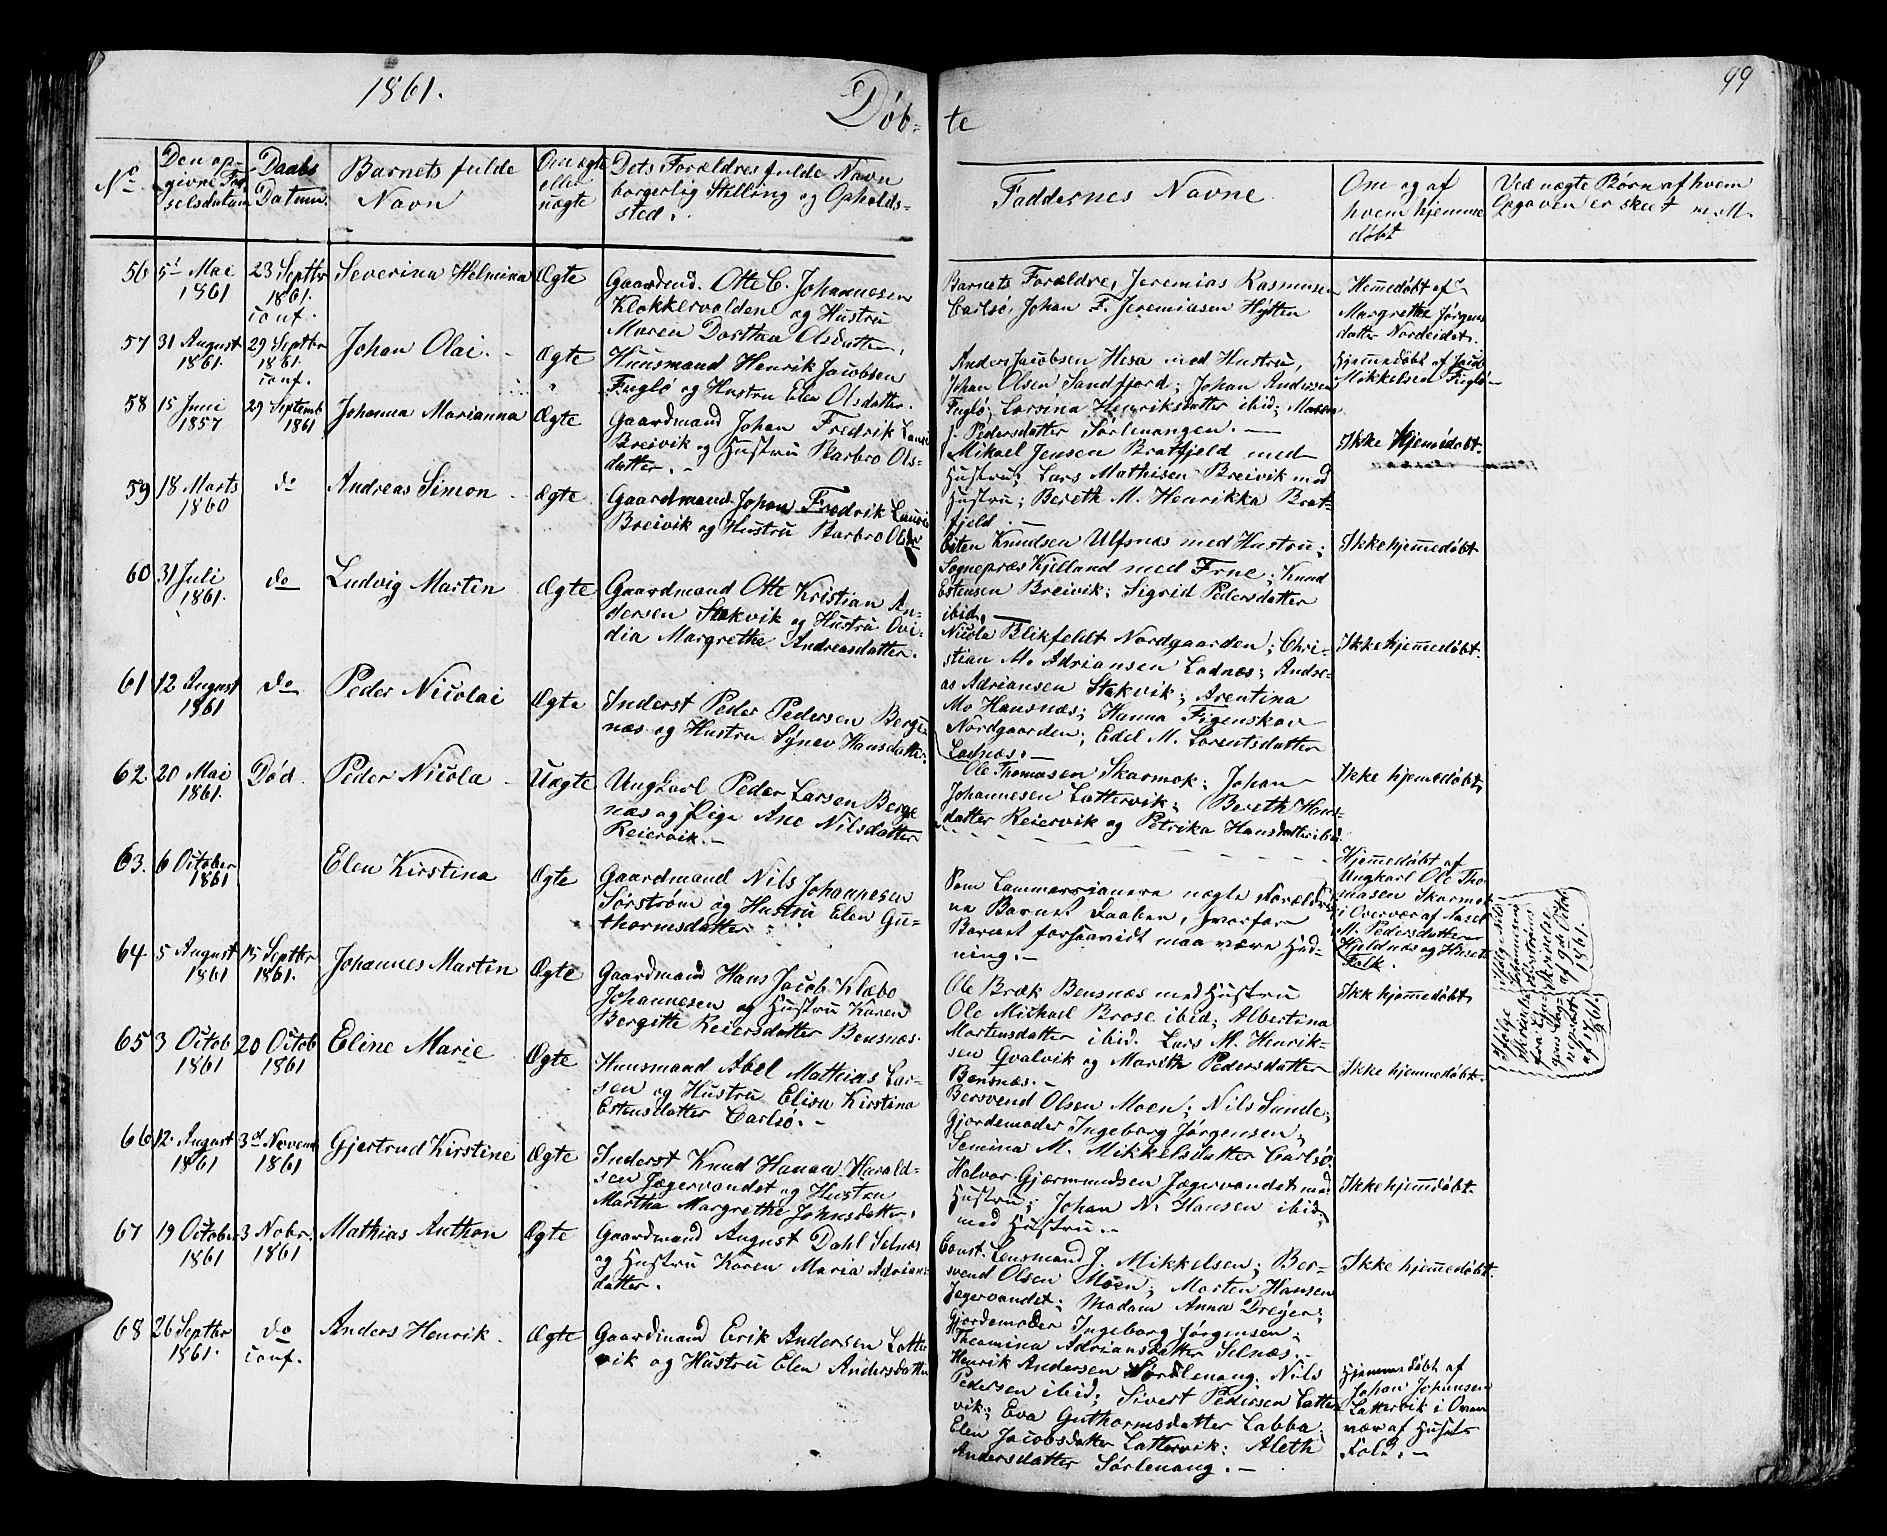 1861.
Døb-
te
99
No
Den op-
givne Fød-
selsdatum
Daabs
Datum.
Barnets fulde
Navn
Om ægte
eller
uægte
Dets Forældres fulde Navn
borgerlig Stilling og Opholds-
sted.
Faddernes Navne.
Om og af
hvem hjemme
døbt
Ved uægte Børn af hvem
Opgaven er skeet m. M.
56
5 Mai
1861
23 Septbr
1861.
conf.
Severina Helmina
Ægte
Gaardmd. Otte C. Johannesen
Klokkervolden og Hustru
Maren Dorthea Olsdatter.
Barnets Forældre, Jeremias Rasmusen
Carlsö, Johan F. Jeremiasen Hytten
Hjemmedøbt af
Margrethe Jörgens
datter Nordeidet.
57
31 August
1861.
29 Septbr
1861.
conf.
Johan Olai.
Ægte
Huusmand Henrik Jacobsen
Fuglö og Hustru Elen Olsdatter.
Anders Jacobsen Hesa med Hustru,
Johan Olsen Sandfjord; Johan Andersen
Fuglö; Larsina Henriksdatter ibid; Maren
J. Pedersdatter Sörlenangen. —
Hjemmedøbt af Jacob
Mikkelsen Fuglö —
58
15 Juni
1857
29 Septemb
1861
Johanna Marianna
Ægte
Gaardmand Johan Fredrik Lauri
Breivik og Hustru Barbro Ols-
datter. -
Mikael Jensen Bratfjeld med
Hustru; Lars Mathisen Breivik med
Hustru; Bereth M. Henrikka Brat-
fjeld. —
Ikke Hjemdøbt.
59
18 Marts
1860
do
Andreas Simon
Ægte
Gaardmand Johan Fredrik Lauris
Breivik og Hustru Barbro Olsdr
Esten Knudsen Ulfsnæs med Hustru;
Sognepræs Kjelland med Frue; Knud
Estensen Breivik; Sigrid Pedersdatter
ibid.
Ikke hjemmedøbt
60
31 Juli
1861.
do
Ludvig Martin
Ægte
Gaardmand Otte Kristian An-
dersen Stakvik og Hustru Ovi-
dia Margrethe Andreasdatter.
Nicola Blikfeldt Nordgaarden; Chri-
stian M. Adriansen Ladnæs; Andre-
as Adriansen Stakvik; Arentina
Mo Hansnæs; Hanna Figenskau
Nordgaarden; Edel M. Lorentsdatter
Ladnæs. —
Ikke hjemmedøbt.
61
12 August
1861
do
Peder Nicolai
Ægte
Inderst Peder Pedersen Berge
næs og Hustru Synev Hansdatter.
Ole Thomasen Skarmok; Johan
Johannesen Lattervik; Bereth Hans-
datter Reiervik og Petrika Hansdatter ibid
Ikke hjemmedøbt
62
20 Mai
1861.
Død.
Peder Nicola
Uægte
Ungkarl Peder Larsen Berge
næs og Pige Ane Nilsdatter
Reiervik. —
Hjemmedøbt af
Ungkarl Ole Tho-
masen Skarmok
i Overvær af
M. Pedersdatter
Hjeldnæs og Huset
Folk.
63.
6 October
1861
Elen Kirstina
Ægte
Gaardmand Nils Johannesen
Sörström og Hustru Elen Gu-
thormsdatter.
Som Lammersianere nægte Forældre-
ne Barnet Daaben, hvorfor
Barnet forsaavidt maa være Hed-
ning. —
64
5 August
1861
15 Septbr
1861.
Johannes Martin
Ægte
Gaardmand Hans Jacob Klæbo
Johannesen og Hustru Karen
Bergitte Reiersdatter Bensnæs.
Ole Bræk Bensnæs med Hustru
Ole Michael Brose ibid; Albertina
Mortensdatter ibid. Lars M. Henrik-
sen Qvalvik og Marith Pedersdatter
Bensnæs. —
Ikk hjemmedøbt.
65
3 Octob
1861
20 Octob
1861
Eline Marie
Ægte
Huusmand Abel Mathias Lar-
sen og Hustru Elisa Kirstina
Estensdatter Carlsö. -
Bersvend Olsen Moen; Nils Sunde;
Gjordemoder Ingeborg Jörgensen;
Semina M. Mikkelsdatter Carlsö.
Ikke hjemmedøbt.
66
12. August
1861
3d Novemb
1861
Gjertrud Kirstine
Ægte
Inderst Knud Hanan Harald-
sen Jægervandet og Hustru
Martha Margrethe Johnsdatter.
Halvor Gjærmundsen Jægervandet med
Hustru; Johan N. Hansen ibid;
med Hustru. —
Ikke hjemmedøbt.
67
19 October
1861
3 Nobr.
1861
Mathias Anthon
Ægte
Gaardmand August Dahl Selnæs
og Hustru Karen Maria Adrians-
datter.
Const. Lensmand J. Mikkelsen; Ber-
svend Olsen Moen; Morten Hansen
Jægervandet; Madam Anna Dreyer;
Gjordemoder Ingeborg Jörgensen;
Theamina Adriansdatter Selnæs. —
Ikke hjemmedøbt.
68
26 Septbr
1861.
do
conf.
Anders Henrik.
Ægte
Gaardmand Erik Andersen Latter
vik og Hustru Elen Andersdatter
Henrik Andersen Sörlenang; Nils
Pedersen ibid; Sivert Pedersen Latter
vik; Eva Guthormsdatter Labba;
Elen Jacobsdatter Lattervik; Aleth
Andersdatter Sörlenang. —
Hjemmedøbt af
Johan Johansen
Lattervik i Over
vær af Husets
Folk. —
Ifølge
Johannesens
Sörströms
af 9de Octbr
1861.